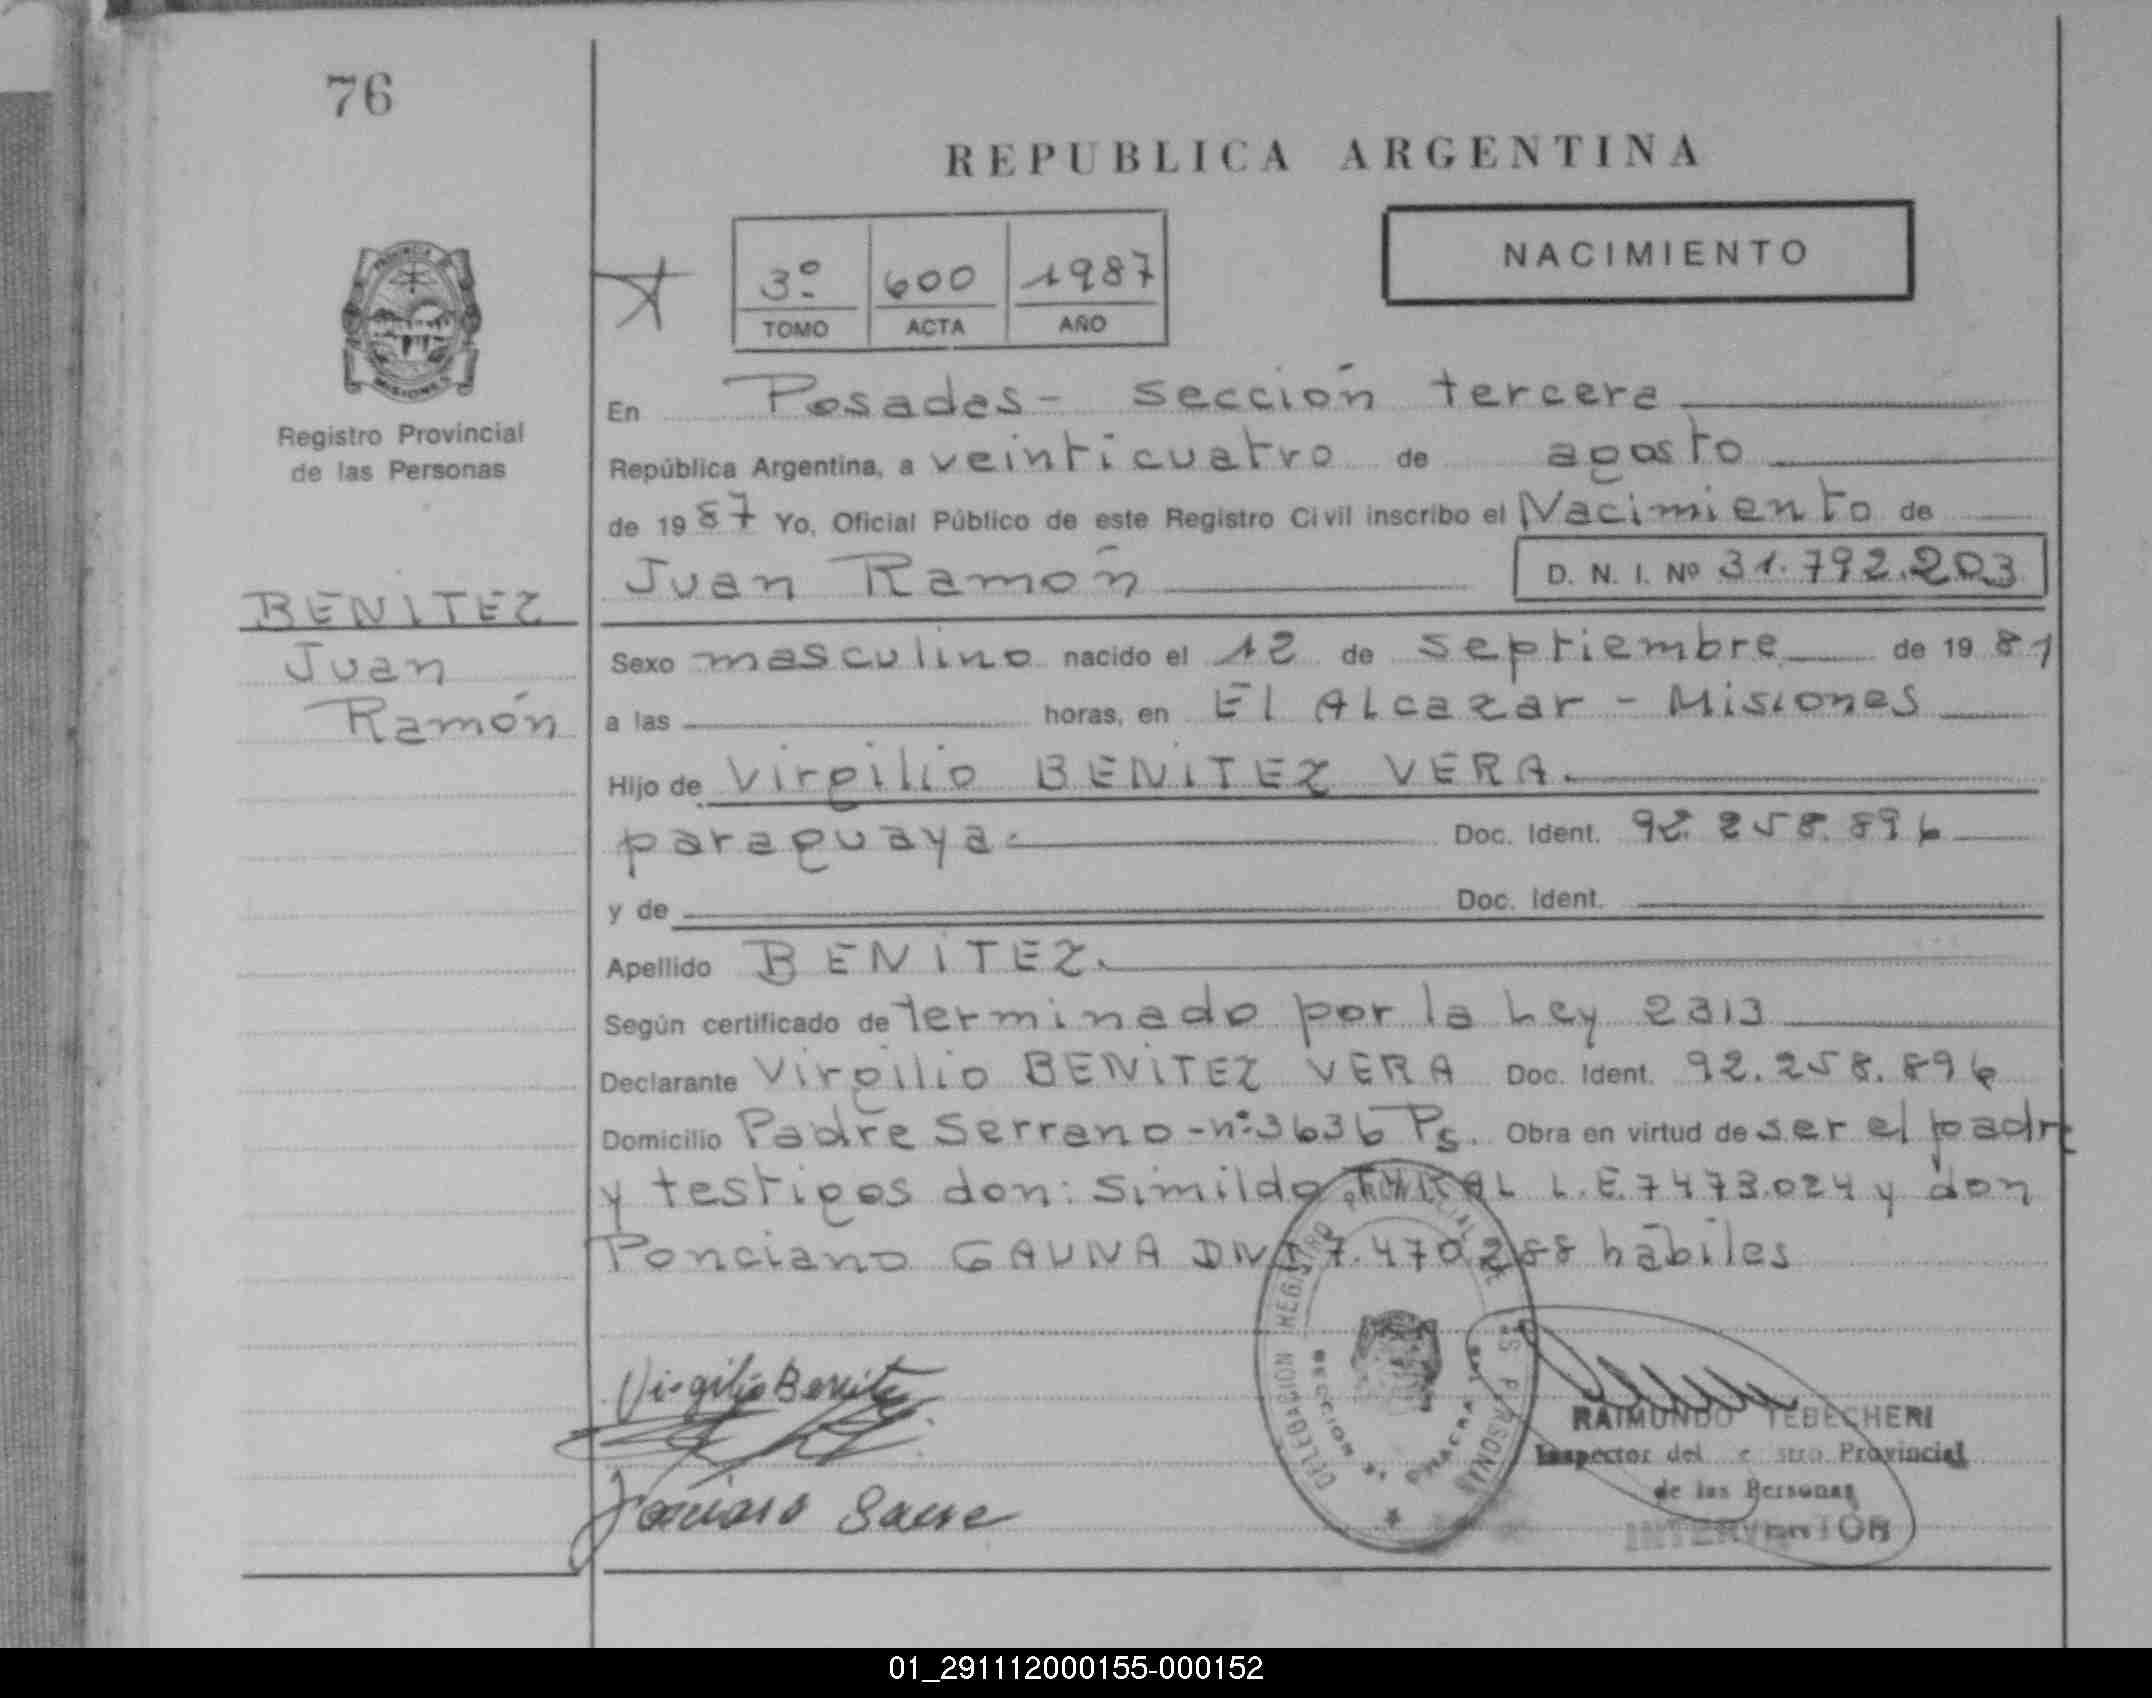 76
REPUBLICA ARGENTINA
NACIMIENTO
3º 600 1987
TOMO ACTA AÑO
PROVINCIA
MISIONES
Registro Provincial
de las Personas
BENITEZ
Juan
Ramón
En Posadas - sección tercera
República Argentina, a veinticuatro de agosto
de 1987 Yo, Oficial Público de este Registro Civil inscribo el Nacimiento de
Juan Ramón D. N. I. Nº 31.792.203
Sexo masculino nacido el 12 de septiembre de 1981
a las horas, en El Alcazar - Misiones
Hijo de Virgilio BENITEZ VERA.
paraguaya. Doc. Ident. 92.258.896
y de Doc. Ident.
Apellido BENITEZ.
Según certificado de terminado por la Ley 2313
Declarante Virgilio BENITEZ VERA Doc. Ident. 92.258.896
Domicilio Padre Serrano - nº 3636 Ps. Obra en virtud de ser el padre
y testigos don: Simildo L.E. 7473.024 y don
Ponciano GAUNA DNI 7.470.288 hábiles
Virgilio Benitez
DELEGACION REGISTRO PROVINCIAL DE LAS PERSONAS
SECCION 3ª CHACRA
RAIMUNDO TEBECHERI
Inspector del e stro Provincial
de las Personas
INTERVENTOR
01_291112000155-000152